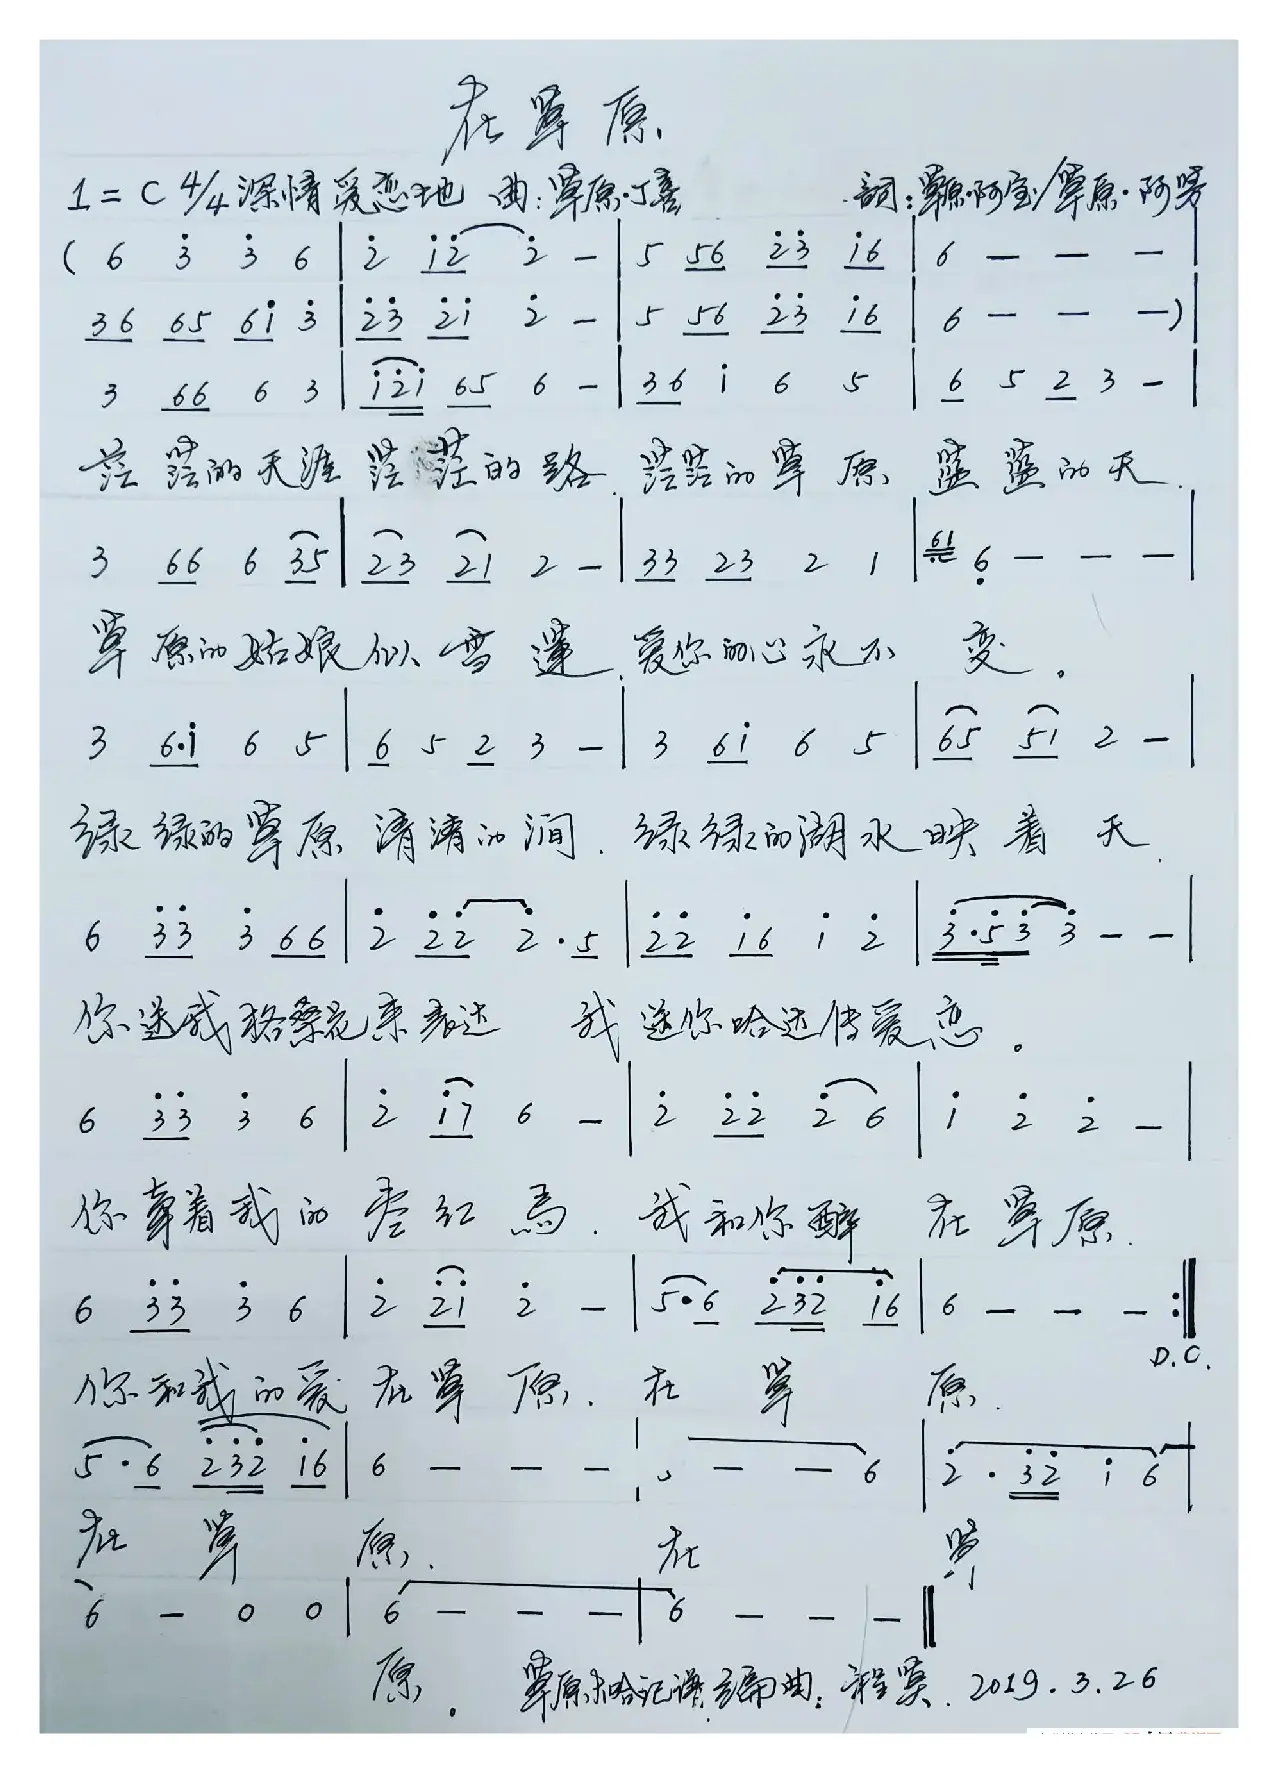 在草原
1=C 4/4 深情爱恋地 曲:草原·丁喜 詞:草原·阿宝/草原·阿努
( 6 3̇ 3̇ 6 | 2̇ 1̇2̇ 2̇ — | 5 56 2̇3̇ 1̇6 | 6 — — — |
36 65 61̇ 3̇ | 2̇3̇ 2̇1̇ 2̇ — | 5 56 2̇3̇ 1̇6 | 6 — — — )
3 66 6 3 | 1̇2̇1̇ 65 6 — | 36 1̇ 6 5 | 6 5 2 3 — |
茫茫的天涯 茫茫的路. 茫茫的草原 蓝蓝的天.
3 66 6 35 | 23 21 2 — | 33 23 2 1 | 61 6̣ — — — |
草原的姑娘似雪莲. 爱你的心永不变。
3 6·1̇ 6 5 | 6 5 2 3 — | 3 61̇ 6 5 | 65 51 2 — |
绿绿的草原 清清的涧. 绿绿的湖水映着天.
6 3̇3̇ 3̇ 66 | 2̇ 2̇2̇ 2̇·5 | 2̇2̇ 1̇6 1̇ 2̇ | 3̇·5̇3̇ 3̇ — — |
你送我格桑花来表达 我送你哈达传爱恋。
6 3̇3̇ 3̇ 6 | 2̇ 1̇7 6 — | 2̇ 2̇2̇ 2̇ 6 | 1̇ 2̇ 2̇ — |
你牵着我的枣红馬. 我和你醉在草原.
6 3̇3̇ 3̇ 6 | 2̇ 2̇1̇ 2̇ — | 5·6 2̇3̇2̇ 1̇6 | 6 — — — :‖
D.C.
你和我的爱在草原. 在草原.
5·6 2̇3̇2̇ 1̇6 | 6 — — — | — — 6 | 2̇·3̇2̇ 1̇ 6 |
在草原. 在草
6 — 0 0 | 6 — — — | 6 — — — ‖
原。 草原 哈记谱. 编曲: 2019.3.26